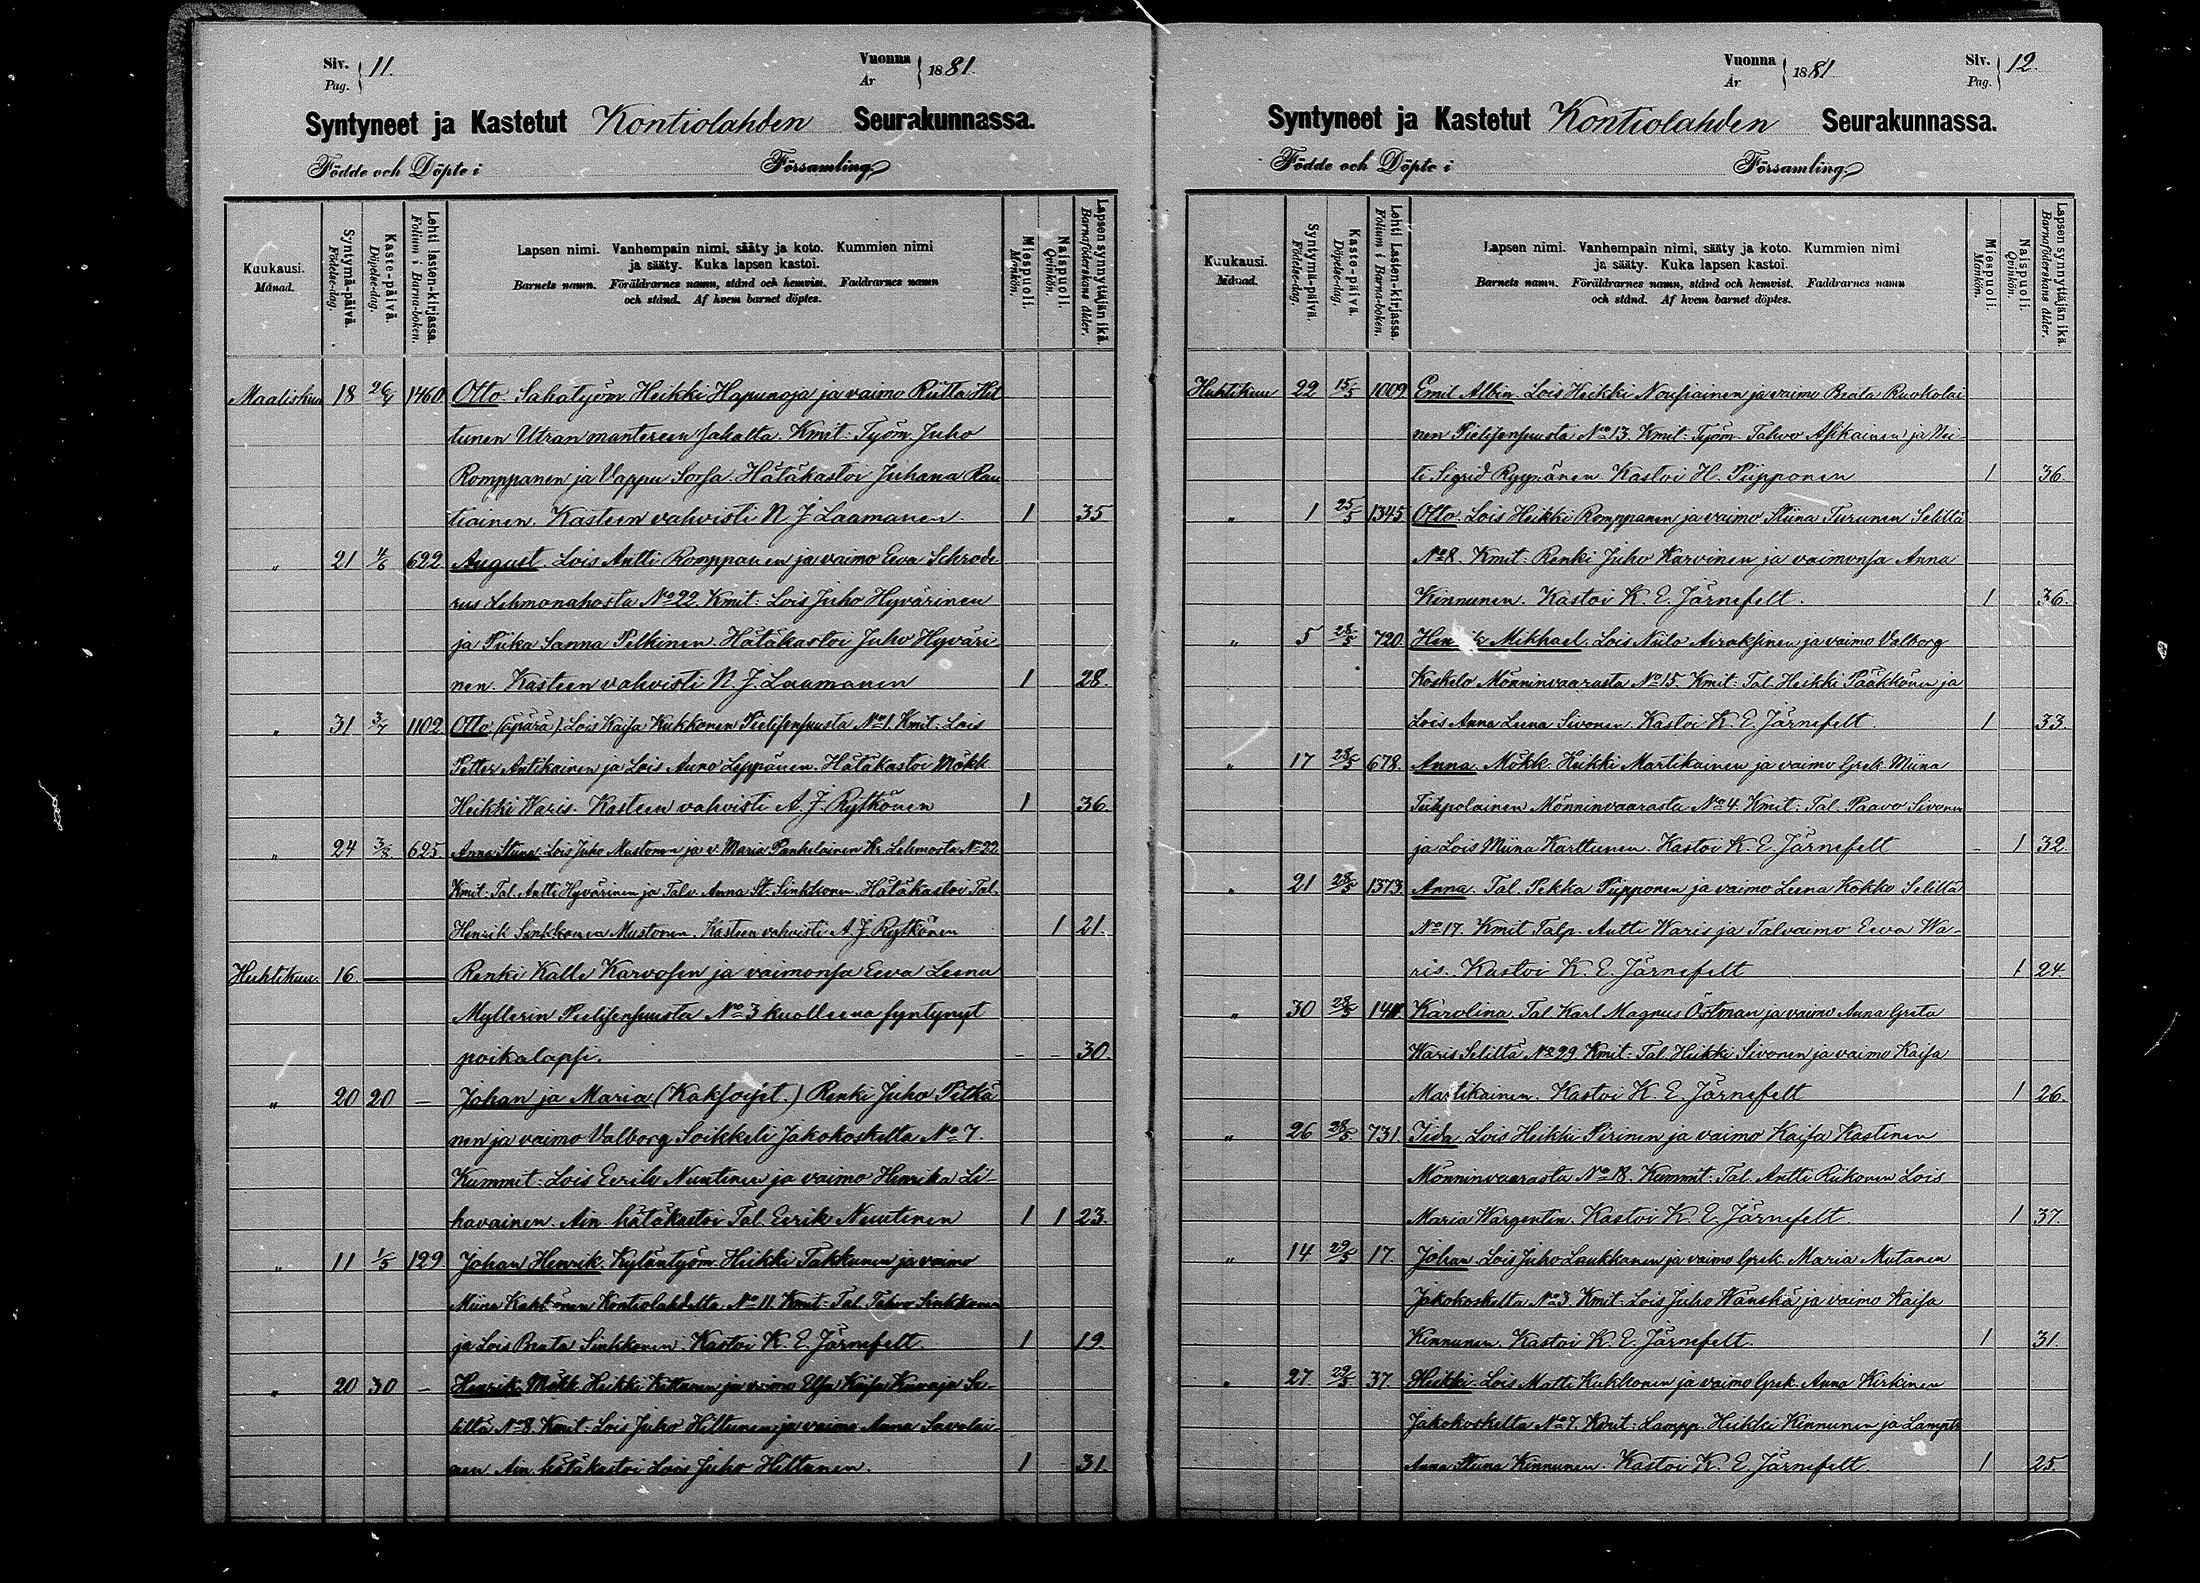 Siv. Pag. 11. Vuonna År 1881.
Syntyneet ja Kastetut Kontiolahden Seurakunnassa.
Födde och Döpte i Församling
Kuukausi. Månad.
Syntymä-päivä. Födelse-dag.
Kaste-päivä. Döpelse-dag.
Lehti lasten-kirjassa. Folium i Barna-boken.
Lapsen nimi. Vanhempain nimi, sääty ja koto. Kummien nimi
ja sääty. Kuka lapsen kastoi.
Barnets namn. Föräldrarnes namn, stånd och hemvist. Faddrarnes namn
och stånd. Af hvem barnet döptes.
Miespuoli. Mankön.
Naispuoli. Qvinkön.
Lapsen synnyttäjän ikä. Barnaföderskans ålder.
Maaliskuu 18 26/4 1460 Otto. Sahatyöm. Heikki Hapunoja ja vaimo Riitta Hil
tunen Utran mantereen sahalta. Kmit: Työm. Juho
Romppanen ja Vappu Sorsa. Hätäkastoi Juhana Rau
tiainen. Kasteen vahvisti N. J. Laamanen. 1 35
" 21 4/6 622 August. Lois Antti Romppanen ja vaimo Eeva Schrode
rus Lehmonahosta No 22. Kmit: Lois Juho Hyvärinen
ja Piika Sanna Pelkinen. Hätäkastoi Juho Hyväri
nen. Kasteen vahvisti N. J. Laamanen 1 28.
" 31 3/7 1102 Otto (äpärä). Lois Kaisa Kukkonen Pielisensuusta No 1. Kmit: Lois
Petter Antikainen ja Lois Auno Leppänen. Hätäkastoi Mökk
Heikki Waris. Kasteen vahvisti A. J. Rytkönen 1 36
" 24 3/8 625 Anna Stiina Lois Juho Mustonen ja v. Maria Pankelainen Kr. Lehmosta No 22
Kmit: Tal. Antti Hyvärinen ja Talv. Anna St. Sinkkonen. Hätäkastoi Tal.
Henrik Sinkkonen Mustonen. Kasteen vahvisti A. J. Rytkönen 1 21.
Huhtikuu. 16. Renki Kalle Karvosen ja vaimonsa Eeva Leena
Myllerin Pielisensuusta No 3 kuolleena syntynyt
poikalapsi. - - 30.
" 20 20 — Johan ja Maria (Kaksoiset.) Renki Juho Pitkä
nen ja vaimo Valborg Soikkeli Jakokoskelta No 7.
Kummit: Lois Eerik Nuutinen ja vaimo Henrika Li-
havainen. Ain. hätäkastoi Tal. Eerik Nuutinen 1 1 23.
" 11 1/5 129 Johan Henrik. Kyläntyöm. Heikki Takkunen ja vaimo
Miina Kahkönen Kontiolahdelta. No 11. Kmit: Tal. Tahvo Sinkkonen
ja Lois Beata Sinkkonen. Kastoi K. E. Järnefelt. 1 19.
" 20 30 — Henrik. Mökk. Heikki Kettunen ja vaimo Ulla Kaisa Kuvaja Se-
liltä No 8. Kmit: Lois Juho Hiltunen ja vaimo Anna Savolai-
nen. Ain hätäkastoi Lois Juho Hiltunen. 1 31.
Vuonna År 1881 Siv. Pag. 12.
Syntyneet ja Kastetut Kontiolahden Seurakunnassa.
Födde och Döpte i Församling
Kuukausi. Månad.
Syntymä-päivä. Födelse-dag.
Kaste-päivä. Döpelse-dag.
Lehti Lasten-kirjassa. Folium i Barna-boken.
Lapsen nimi. Vanhempain nimi, sääty ja koto. Kummien nimi
ja sääty. Kuka lapsen kastoi.
Barnets namn. Föräldrarnes namn, stånd och hemvist. Faddrarnes namn
och stånd. Af hvem barnet döptes.
Miespuoli. Mankön.
Naispuoli. Qvinkön.
Lapsen synnyttäjän ikä. Barnaföderskans ålder.
Huhtikuu 22 15/5 1009 Emil Albin. Lois Heikki Nousiainen ja vaimo Beata Ruokolai
nen Pielisensuusta No 13. Kmit: Työm. Tahvo Asikainen ja Nei-
ti Sigrid Ryynänen Kastoi H. Piipponen 1 36.
" 1 25/5 1345 Otto. Lois Heikki Romppanen ja vaimo Stiina Turunen Seliltä
No 8. Kmit: Renki Juho Karvinen ja vaimonsa Anna
Kinnunen. Kastoi K. E. Järnefelt. 1 36.
" 5 28/5 720. Henrik Mikhael. Lois Niilo Airaksinen ja vaimo Valborg
Koskelo Mönninvaarasta No 15. Kmit: Tal. Heikki Pääkkönen ja
Lois Anna Leena Sivonen. Kastoi K. E. Järnefelt. 1 33.
" 17 28/5 678. Anna. Mökk. Heikki Martikainen ja vaimo Grek. Miina
Tiihpolainen Mönninvaarasta No 4. Kmit: Tal. Paavo Sivonen
ja Lois Miina Karttunen. Kastoi K. E. Järnefelt - 1 32.
" 21 28/5 1373. Anna. Tal. Pekka Piipponen ja vaimo Leena Kokko Seliltä
No 17. Kmit Talp. Antti Waris ja Talvaimo Eeva Wa-
ris. Kastoi K. E. Järnefelt 1 24.
" 30 28/5 1411 Karolina. Tal. Karl Magnus Östman ja vaimo Anna Greta
Waris Seliltä No 29. Kmit: Tal. Heikki Sivonen ja vaimo Kaisa
Martikainen. Kastoi K. E. Järnefelt 1 26.
" 26 28/5 731. Iida. Lois Heikki Piirinen ja vaimo Kaisa Kastinen
Mönninvaarasta No 18. Kummit: Tal. Antti Riikonen Lois
Maria Wargentin. Kastoi K. E. Järnefelt. 1 37.
" 14 29/5 17. Johan. Lois Juho Laukkanen ja vaimo Grek. Maria Mutanen
Jakokoskelta No 3. Kmit: Lois Juho Wänskä ja vaimo Kaisa
Kinnunen. Kastoi K. E. Järnefelt. 1 31.
" 27. 29/5 37. Heikki. Lois Matti Kukkonen ja vaimo Grek. Anna Kirkinen
Jakokoskelta No 7. Kmit: Lampp. Heikki Kinnunen ja Lampts
Anna Stiina Kinnunen. Kastoi K. E. Järnefelt. 1 25.